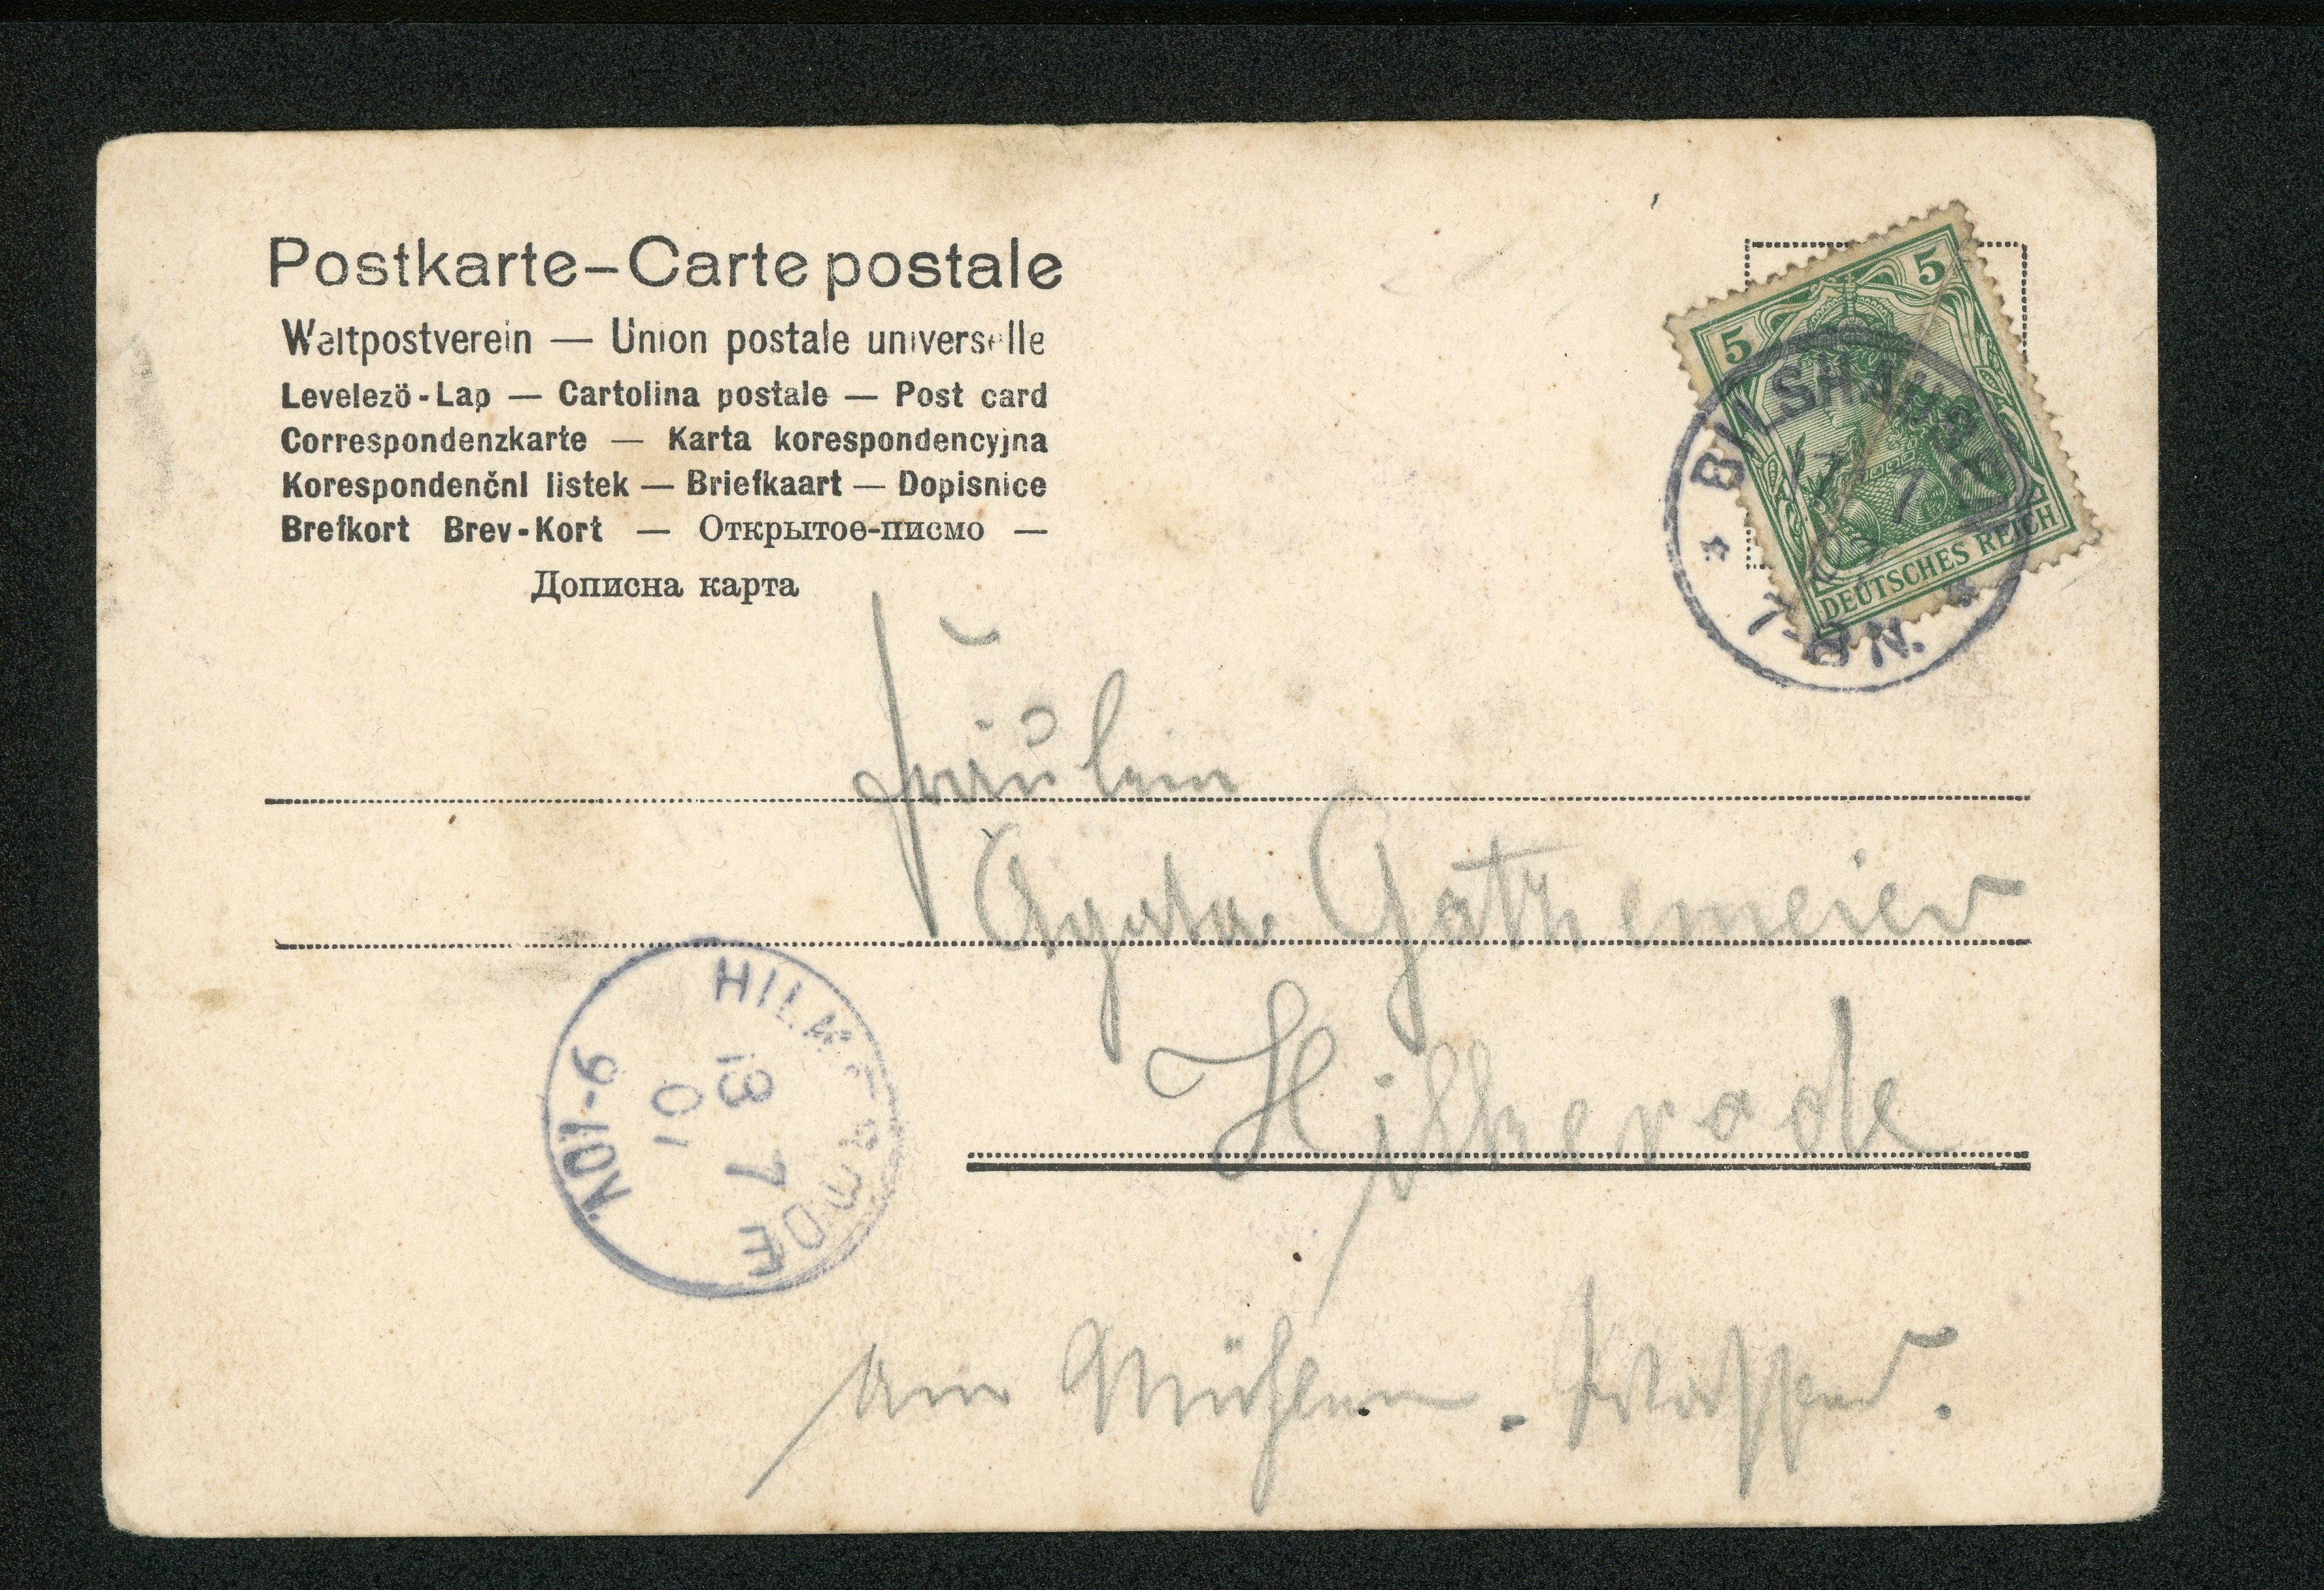 Postkarte – Carte postale
Weltpostverein — Union postale universelle
Levelező-Lap — Cartolina postale — Post card
Correspondenzkarte — Karta korespondencyjna
Korespondenčnl listek — Briefkaart — Dopisnice
Brefkort Brev-Kort — Открытое-письмо —
Дописна карта
5 5
DEUTSCHES REICH
BILSHAUSEN
Fräulein
Agata Gathemeier
Hilkerode
HILKERODE
13 7
01
9-10V.
Am Mühlen-Wasser.